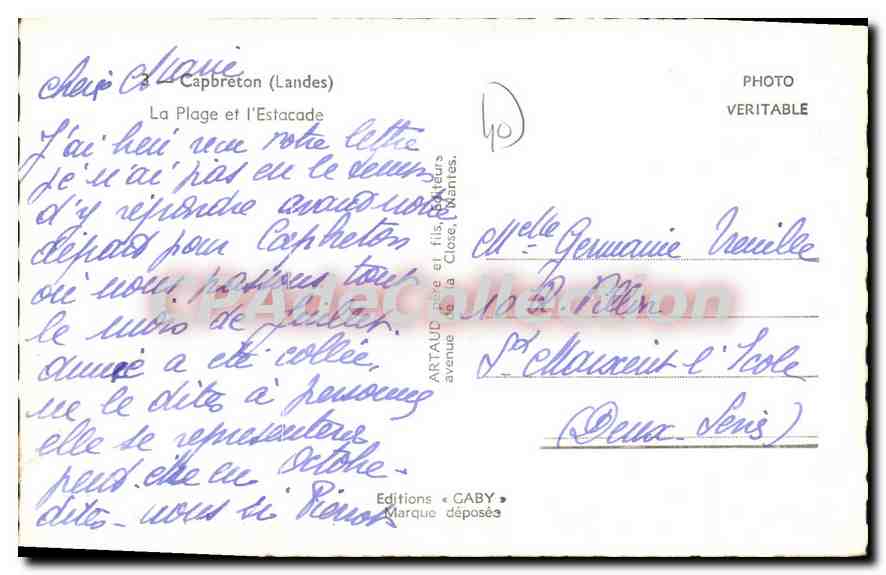 chère Marie
3 — Capbreton (Landes)
La Plage et l'Estacade
J'ai bien reçu votre lettre
je n'ai pas eu le temps
d'y répondre avant notre
départ pour Capbreton
où nous passons tout
le mois de Juillet.
a été collée,
ne le dites à personne
elle se representera
peut être en Octobre.
dites-nous si Pierrot
Editions « GABY »
Marque déposée
ARTAUD père et fils, Editeurs
avenue de la Close, Nantes.
40
PHOTO
VERITABLE
Melle Germaine
10
St Maixent-l'Ecole
(Deux-Sevres)
CPADeCollection